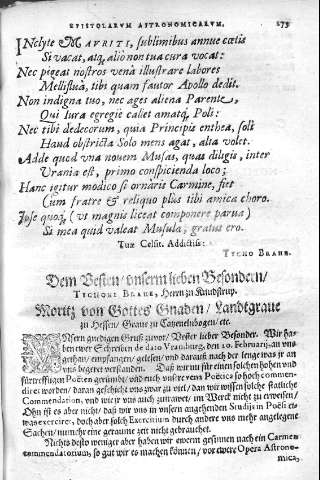 EPISTOLARVM ASTRONOMICARVM. 275
INclyte MAVRITI, sublimibus annue cœlis
Si vacat, atq; aliò non tua cura vocat:
Nec pigeat nostros venâ illustrare labores
Mellifluâ, tibi quam fautor Apollo dedit.
Non indigna tuo, nec ages aliena Parente,
Qui Iura egregiè calles amatq; Poli:
Nec tibi dedecorum, quia Principis enthea, soli
Haud obstricta Solo mens agat, alta volet.
Adde quod vna nouem Musas, quas diligis, inter
Urania est, primo conspicienda loco;
Hanc igitur modico si ornâris Carmine, fiet
Cum fratre & reliquo plus tibi amica choro.
Ipse quoq; (vt magnis liceat componere parua)
Si mea quid valeat Musula, gratus ero.
Tuæ Celsit. Addictiss:
TYCHO BRAHE.
Dem Vesten/ vnserm lieben Besondern/
TYCHONI BRAHE, Herrn zu Knudstrup.
Moritz von Gottes Gnaden/ Landtgraue
zu Hessen/ Graue zu Catzenelnbogen/ etc.
VNsern gnedigen Gruß zuvor/ Vester lieber Besonder. Wir haben
ewer Schreiben de dato Vraniburg, den 10. Februarij, an vns
gethan/ empfangen/ gelesen/ und darauß nach der lenge was jr an
vns begeret verstanden. Daß wir nu für einen solchen hohen und
fürtrefflichen Poëten gerümbt/ und euch unser vena Poëtica so hoch commendiret
worden/ daran geschicht vns zwar zu viel/ dan wir wissen solche statliche
Commendation, und wie jr vns auch zutrawet/ im Werck nicht zu erweisen/
Ohn ist es aber nicht/ daß wir vns in vnsern angehenden Studijs in Poësi etwas
exerciret, doch aber solch Exercitium durch andere vns mehr angelegene
Sachen/ nunmehr eine geraume zeit nicht gebrauchet.
Nichts desto weniger aber haben wir ewerm gesinnen nach ein Carmen
commendatorium, so gut wir es machen können/ vor ewere Opera Astronomica,